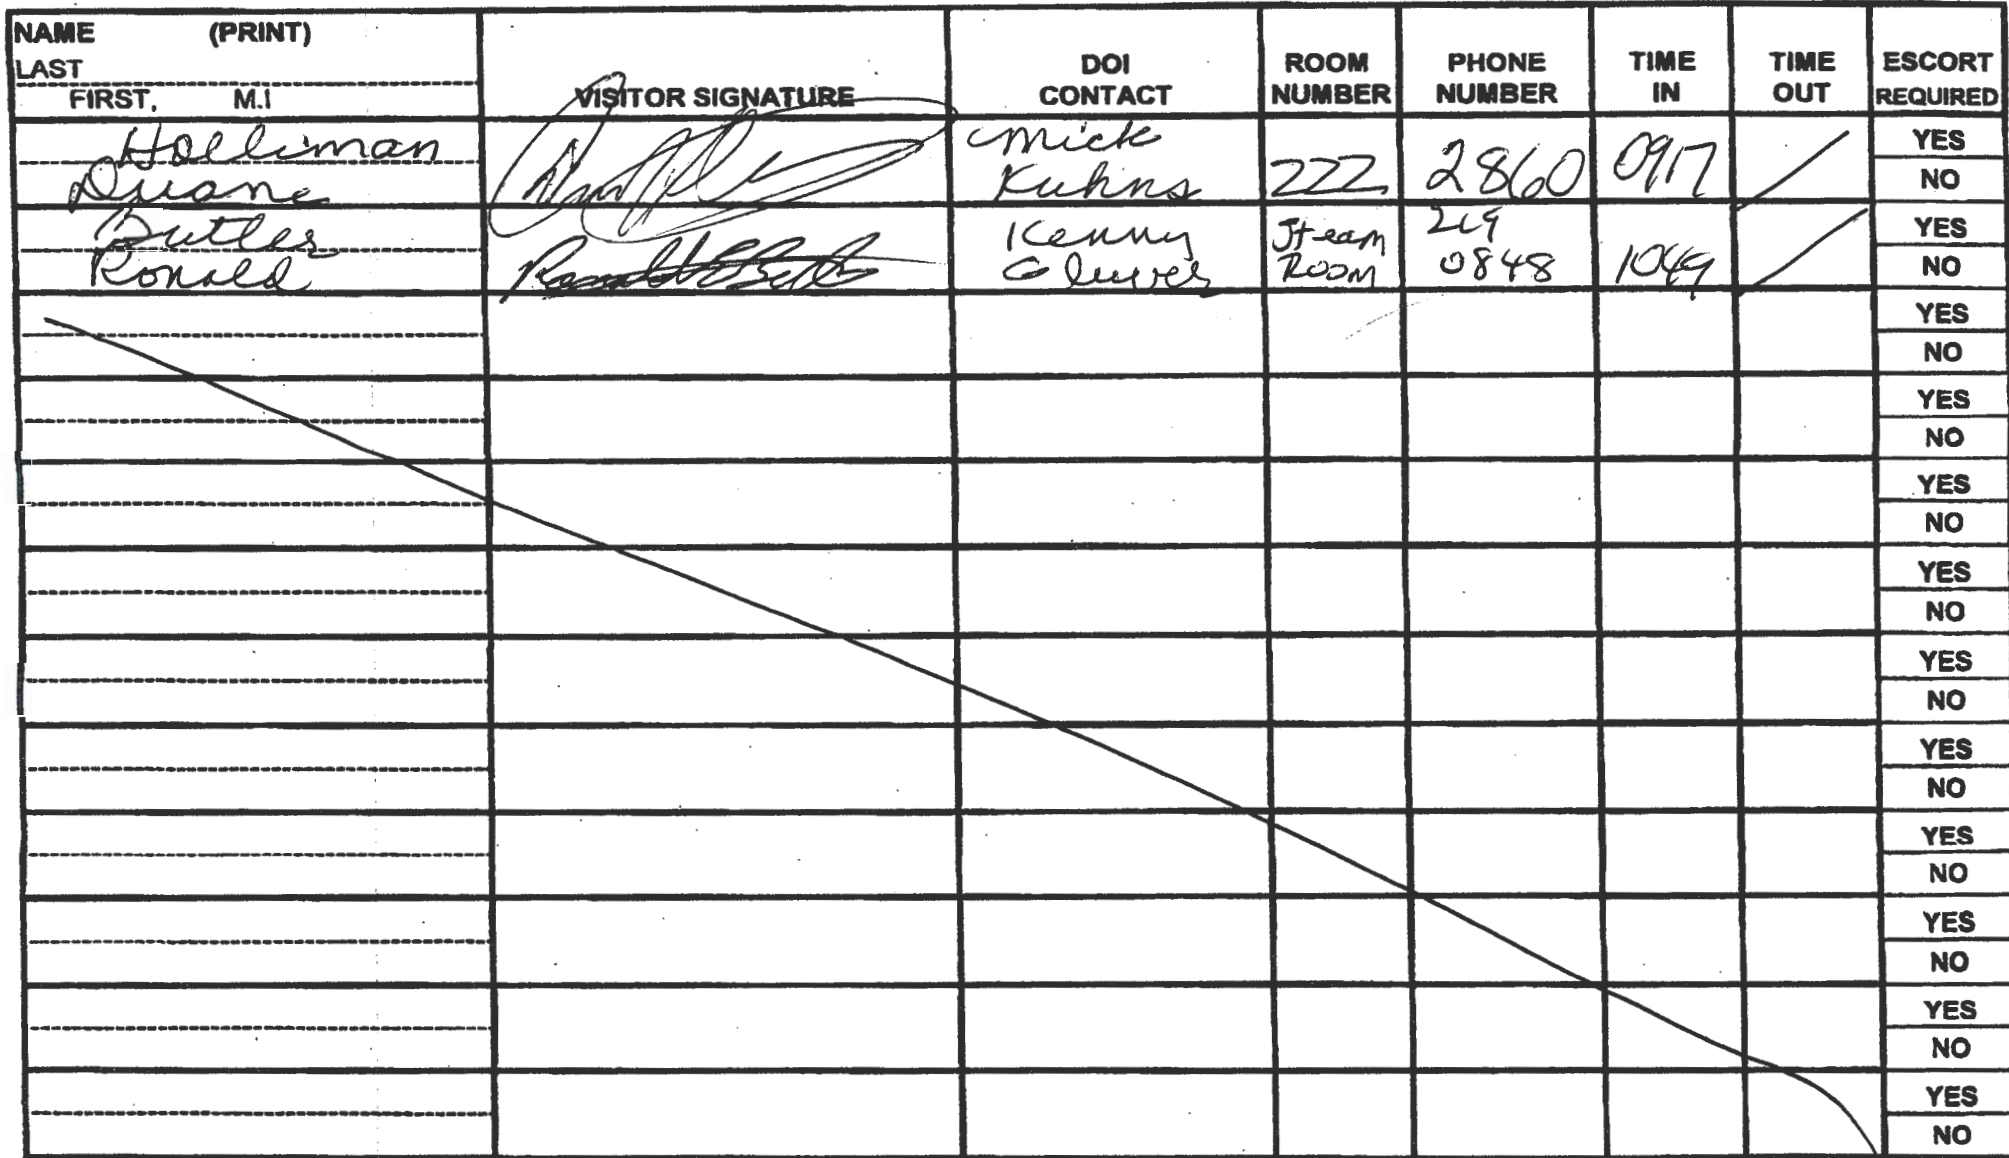 NAME (PRINT)
LAST
FIRST, M.I
VISITOR SIGNATURE
DOI
CONTACT
ROOM
NUMBER
PHONE
NUMBER
TIME
IN
TIME
OUT
ESCORT
REQUIRED
Holliman
Duane
Mick
Kuhns
222
2860
0917
YES
NO
Butler
Ronald
Kenny
Steam
Room
219
0848
1049
YES
NO
YES
NO
YES
NO
YES
NO
YES
NO
YES
NO
YES
NO
YES
NO
YES
NO
YES
NO
YES
NO